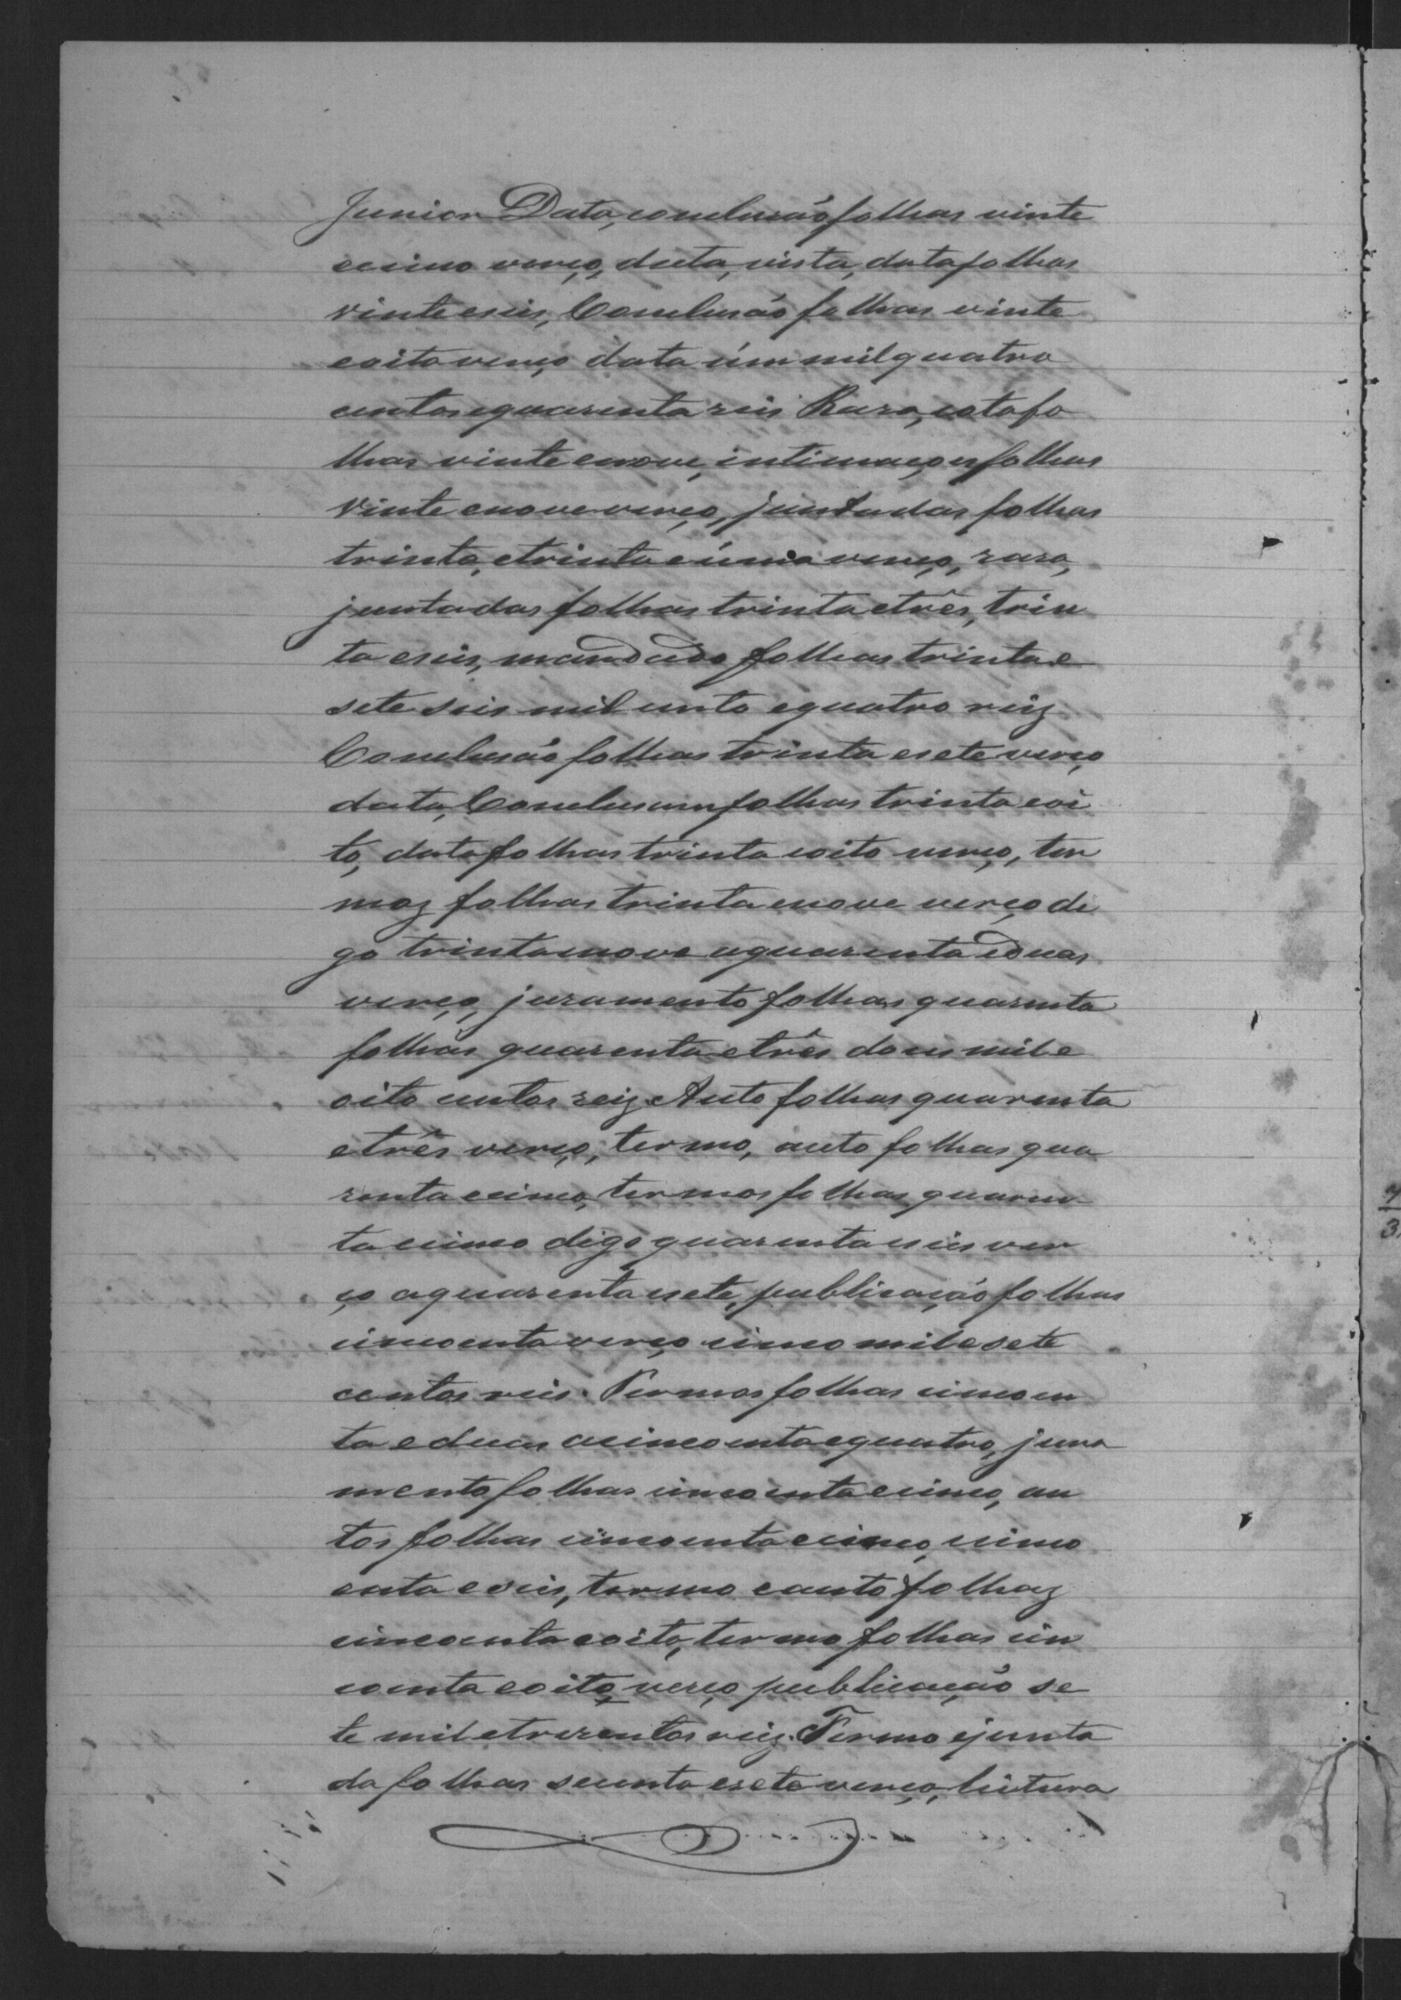 Junior Data, conclusão folhas vinte
ecinco verço, dacta, vista, data folhas
vinte eseis, Conclusão folhas vinte
eoito verço data úm mil quatro
centos equarenta reis Raza, cota fo
lhas vinte enove, intimações folhas
vinte enove verço, juntadas folhas
trinta, etrinta eúma verço, raza,
juntadas folhas trinta etrês, trin
ta eseis, mandado folhas trinta e
sete seis mil cento equatro reiz
Conclusão folhas trinta esete verço
data, Conclusam folhas trinta eoi
to, data folhas trinta eoito verço, ter
moz folhas trinta enove verço di
go trinta enove aquarenta eduas
verço, juramento folhas quarenta
folhas quarenta etrês dous mil e
oito centos reiz Auto folhas quarenta
etrês verço, termo, auto folhas qua
renta ecinco, termos folhas quaren
ta ecinco digo quarenta eseis ver
ço aquarenta esete, publicação folhas
cincoenta verço cinco mil e sete
centos reis. Termos folhas cincoen
ta eduas acincoenta equatro, jura
mento folhas cincoenta ecinco, au
tos folhas cincoenta ecinco, cinco
enta eseis, termo eauto folhaz
cincoenta eoito, termo folhas cin
coenta eoito verço publicação se
te mil etrezentos reiz. Termo ejunta
da folhas secenta esete verço, leitura
7
3